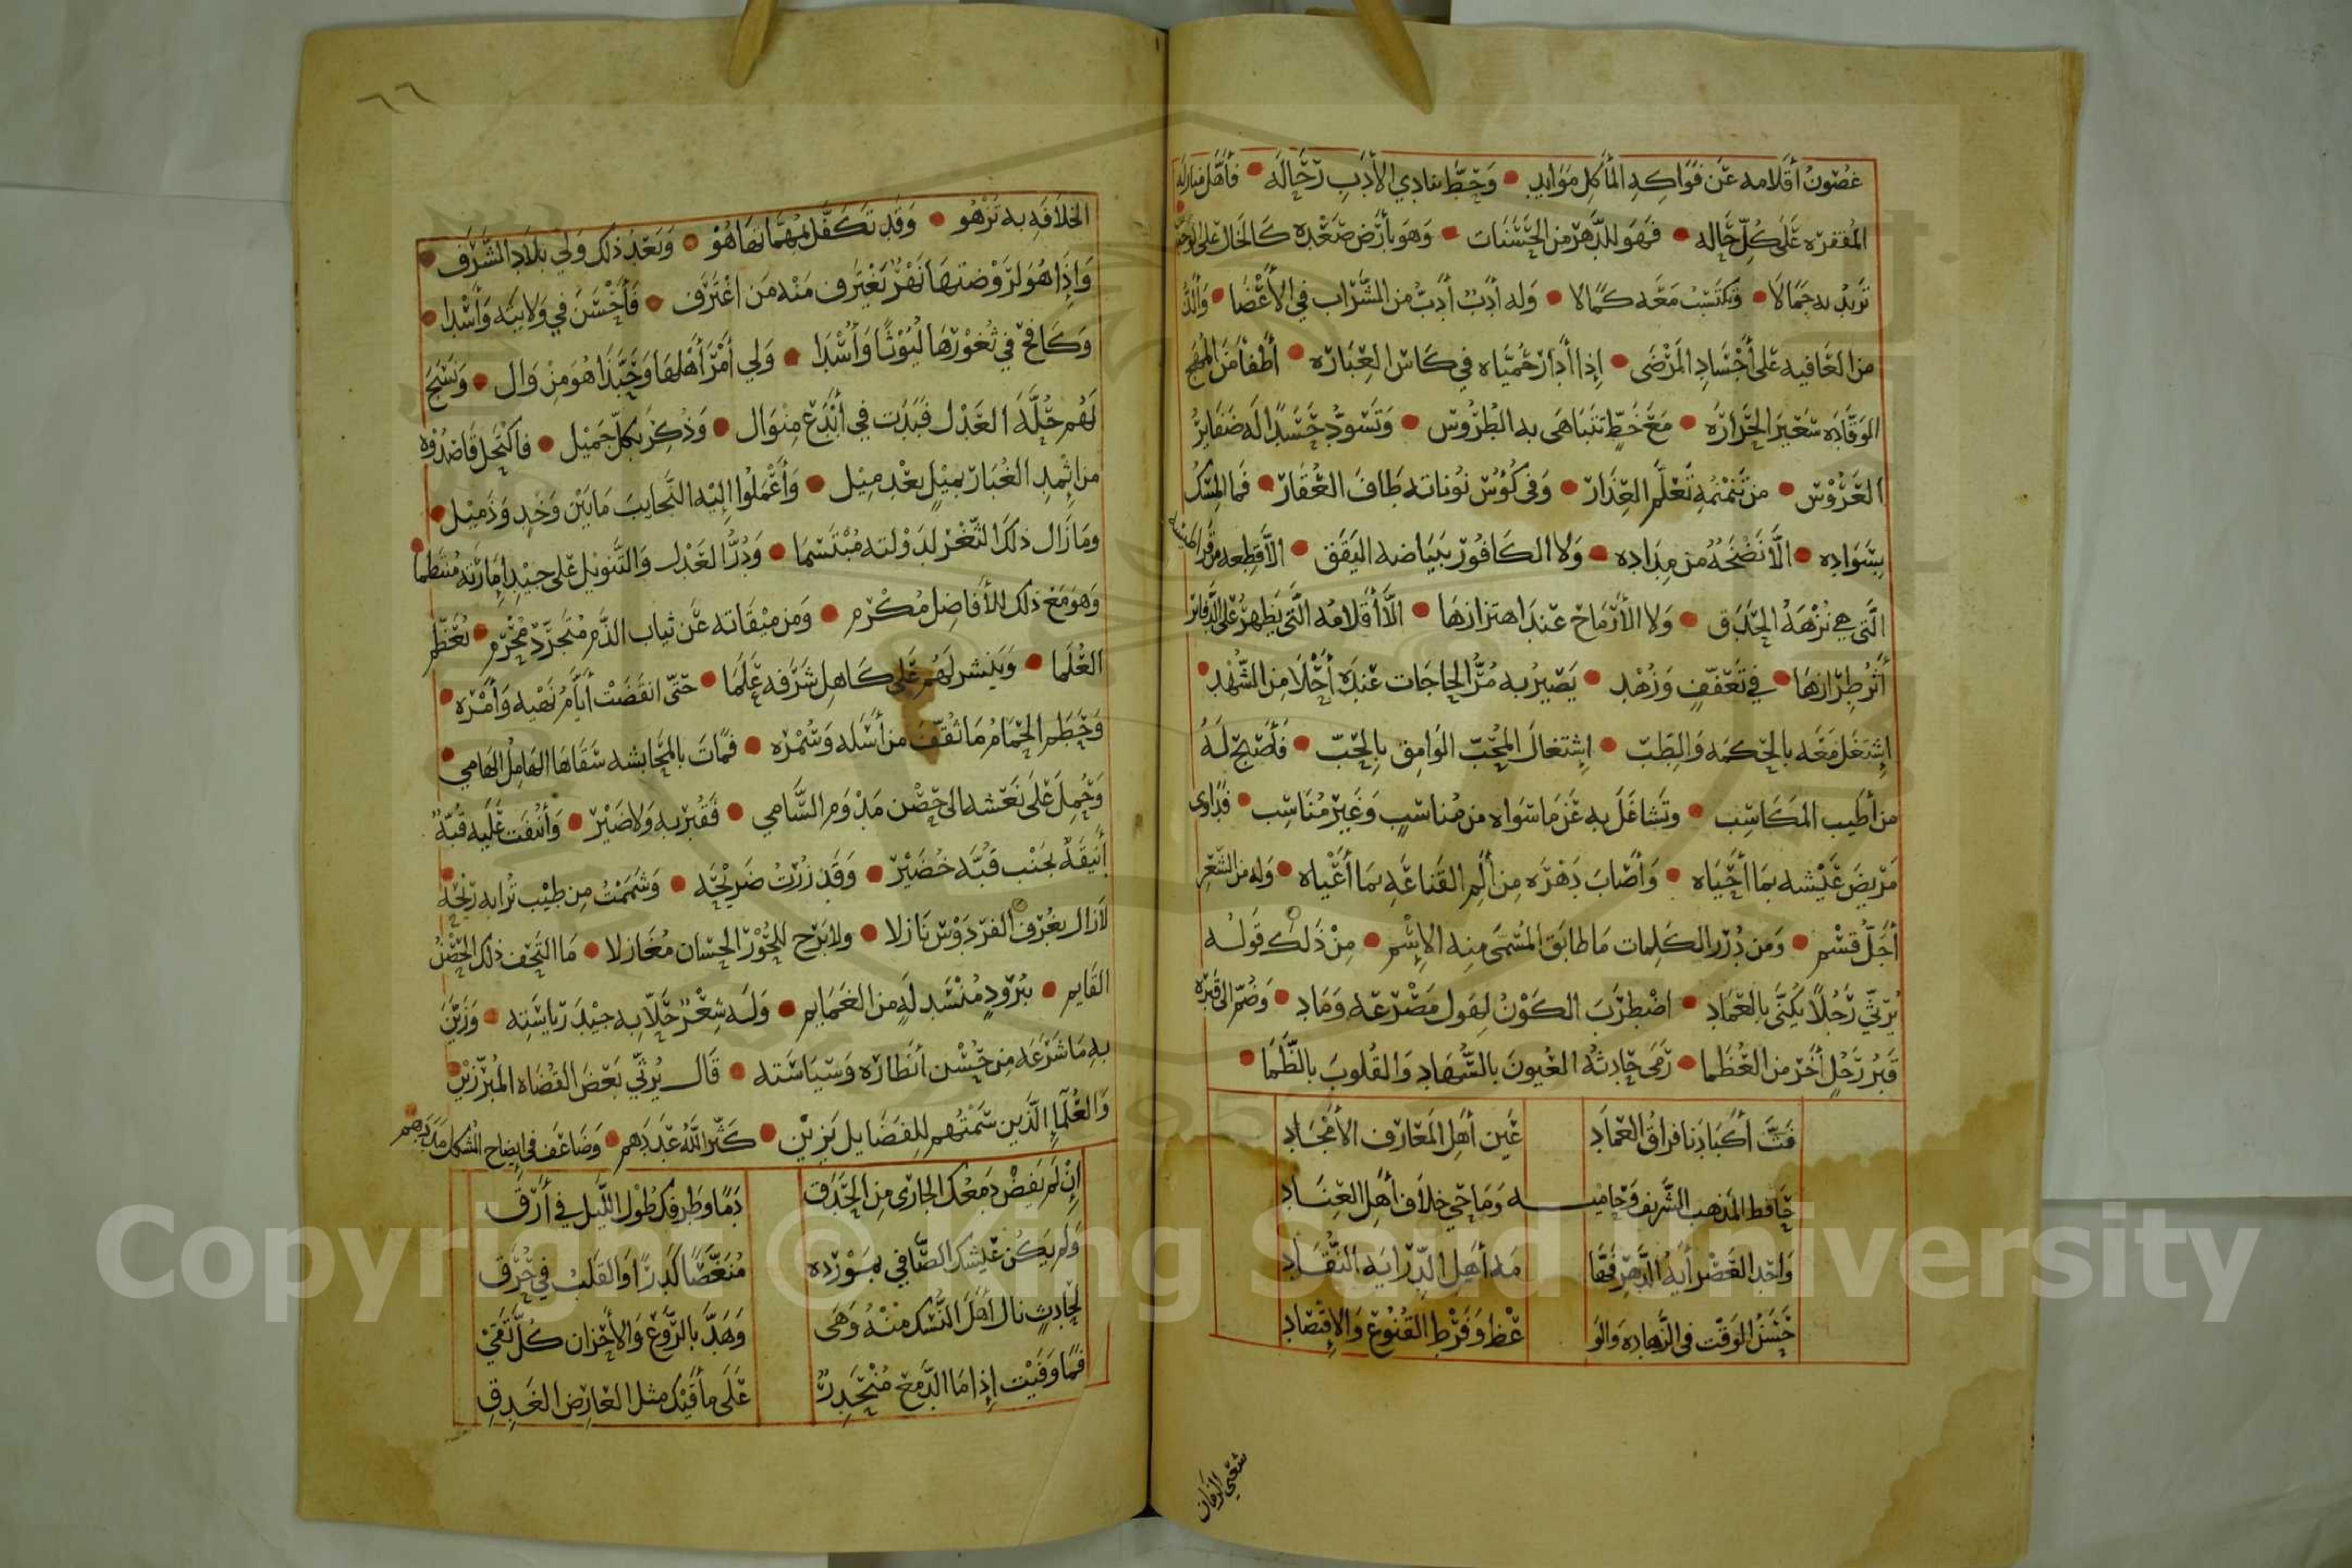 غُصُونُ أَقْلَامِهِ عَنْ فَوَاكِهِ المَآكِلِ مَوَايِد • وَحَطَّ بِنَادِي الأَدَبِ رِحَالَه • فَأَهَّلَ مَنَازِلَه
المُقْفِرَه عَلَى كُلِّ حَالِه • فَهُوَ لِلدَّهْرِ مِنَ الحَسَنَات • وَهُوَ بِأَرْضِ صَعْدِه كَالخَالِ عَلَى
تَزِيدُ بِهِ جَمَالَا • وَتَكْتَسِبُ مَعَهُ كَمَالا • وَله أَدَبٌ أَدَبُّ مِن الشَّرَاب فِي الأَعْضَا • وَأَلَذُّ
من العَافِيه عَلى أَجْسَادِ المَرْضَى • إِذا أَدَارَ حُمَيَّاه فِي كَاسِ العِبَارَه • أَطْفأَ مِنَ المُهَج
الوَقَّادَه سَعِيرَ الحَرَارَه • مَعَ خَطٍّ تَتَبَاهَى بِه الطُّرُوس • وَتَسْوَدُّ حَسَدًا لَه ضَفَايِرُ
العَرُوْس • مِنْ نَمْنَمِةِ تَعَلَّم العِذَار • وَفِي كُؤُسِ نُونَاتِه طَافَ العُقَار • فَمَا المِسْكُ
بِسَوَادِه • الَّا نَضْحَةُ مِنْ مِدَادِه • وَلا الكَافُوْر بِبَيَاضِه اليَقَق • الَّا قِطعه مِن قِرَاطِيْسه
الَّتي هي نُزْهَةُ الحَدَق • وَلا الأَرْمَاح عِنْدَ اهْتِزَازِهَا • الَّا أَقْلَامُه الَّتي يَظهرُ على الدَّفَاتر
أَثَرُ طِرَازِهَا • فِي تَعَفُّفٍ وَزُهْد • يَصِيْرُ بِه مُرُّ الحَاجَات عِنْدَه أَحْلَا مِن الشُّهْد •
اِشْتَغَلَ مَعَه بِالحِكمَه وَالطِّبّ • اِشْتِغَالَ المُحِبّ الوَامِق بِالحِبّ • فَأَصْبَحَ لَهُ
من أَطْيَب المَكَاسِب • وَتَشَاغَلَ بِه عَنْ مَا سَوَاه مِن مُنَاسِبٍ وَغَيْرِ مُنَاسِب • فَدَاوى
مَرِيضَ عَيْشِه بِمَا أَحْيَاه • وَأَصَابَ دَهْرَه مِن أَلَمِ القَنَاعَه بِمَا أَعْيَاه • وَله مِن الشِّعْر
أَجَلُّ قِسْم • وَمِن دُرَرِ الكَلِمَات مَا طَابَقَ المُسَمَّى مِنه الإِسْم • مِنْ ذَلِكَ قَولُه
يَرْثِي رَجُلًا يُكَنَّى بِالعِمَاد • اضْطَرَبَ الكَوْنُ لِهَول مَصْرَعِه وَمَاد • وَضُمّ الى قَبْرِه
قَبْرُ رَجُلٍ أَخَر مِن العُظَمَا • رَمَى حَادِثُه العُيونَ بِالسُّهَادِ وَالقُلوبَ بِالظَّمَا •
فَتَّ أَكْبَادَنا فِرَاقُ العِمَادِ عَيْن أَهْلِ المَعَارِف الأَمْجَادِ
حَافظ المَذهب الشَّريف وَحَاميـه وَمَاحي خِلَاف أَهْلِ العِنَادِ
وَاحِد العَصْر أَيةُ الدَّهر فَقَّا مَه أَهْل الدِّرَايةِ النُّقَّادِ
حَسَن الوَقت في الزَّهاده وَالوَ عْظ وَفَرْطِ القُنُوْعِ وَالإِقْتِصَادِ
شغني الزمان
٦٦
الخِلَافَه بِه تَزْهُو • وَقَد تَكَفَّل بِمُهِمَّاتِهَا هُوْ • وَبَعْدَ ذَلك وَلي بِلَادِ الشَّرَف •
وَإِذَا هُوَ لِرَوْضَتِهَا نَهْرٌ يَغْتَرِف مَنْه مَن اغْتَرَف • فَأَحْسَنَ فِي وَلَايَتِه وَأَسْدَا •
وَكَافَح فِي ثُغُوْرِهَا لُيُوْثًا وَأُسْدَا • وَلي أَمْرَ أَهْلِهَا وَحَبَّذَا هُوَ مِنْ وَال • وَنَسَجَ
لَهُم حُلَّةَ العَدْل فَبَدَت فِي أَبْدَع مِنْوَال • وَذُكِرَ بِكلّ جَمِيْل • فَاكْتَحل قَاصِدُوْه
من إِثْمِدِ الغُبَار بِمِيْلٍ بَعْد مِيْل • وَأَعْمَلُوا إِلَيْه النَّجَايبَ مَا بَيْن وَخْدٍ وَذَمِيْل •
وَمَا زَال ذلكَ الثَّغْر لِدَوْلَته مُبْتَسِمَا • وَدُرُّ العَدْل وَالتَّنوِيْل عَلى جِيْد إِمَارَته مُنْتَظِما •
وَهوَ مَعْ ذلك للأَفَاضِل مُكْرِم • وَمِن مِيْقَاته عَن ثياب الذَّم مُتَجَرِّدْ مُحْرِم • يُعَظِّم
العُلَمَا • وَيَنشر لَهُم عَلى كَاهِل شَرَفه عَلَمَا • حَتّى انقَضَتْ أَيَّامُ نَهْيه وَأَمْرِه •
وَحَطَم الحِمَامُ مَا ثُقِّفَ من أَسَلِه وَسُمْرِه • فَمَاتَ بِالمَحَابِشه سَقَاهَا الهَامِلُ الهَامي •
وَحُمِلَ عَلى نَعْشه الى حِصْن مَدْوَم السَّامِي • فَقُبِرَ بِه وَلا ضَيْر • وَأُنِفَت عَلَيه قُبّةٌ
أَنِيقَةٌ بجَنْب قُبّة خُضَيْر • وَقَدْ زُرْتُ ضَرِيْحَه • وَشَمَمْتُ مِن طِيْب تُرَابه رِيْحَه •
لَا زَال بِغُرَف الفِردَوْس نَازِلا • ولا بَرَح لِلحُوْر الحِسَان مُغَازِلا • مَا التَحَف ذلك الحِصْنُ
القَايم • بِبُرُودٍ مُنْسَدِلَةٍ من الغَمَايم • وَلَه شِعْرٌ حَلّا بِه جِيْدَ رِيَاسَتِه • وَزَيَّنَ
بِه مَا شَرَعَه مِن حُسْن أَنْظَارِه وَسِيَاسَته • قَال يُرثّي بَعْضَ القُضَاه المُبَرِّزِيْن •
وَالعُلَمآءِ الَّذِين سَمْتُهم لِلفَضَايل يَزِيْن • كَثَّر اللهُ عَدَدَهم • وَضَاعَف في إيضاح المُشكل مَدَدهم
إِنْ لَم يَفِضْ دَمعُك الجَارِي مِن الحَدَقِ دَمًا وطَرفُك طُوْل اللَّيل في أَرَقِ
وَلم يَكُن عَيشك الصَّافِي بِمَوْرِدِه مُنَغَّصًا كَدِرًا وَالقَلبُ فِي حُرَقِ
لِحَادِثٍ نال أَهْلَ النُّسْك مِنْهُ وَهَى وَهَدَّ بالرَّوع وَالأَحْزان كُلّ تَقِيْ
فَمَا وَفَيْت إِذا مَا الدَّمعُ مُنْحَدِرٌ عَلَى مأَقَيْكَ مثل العَارِض الغَدِقِ